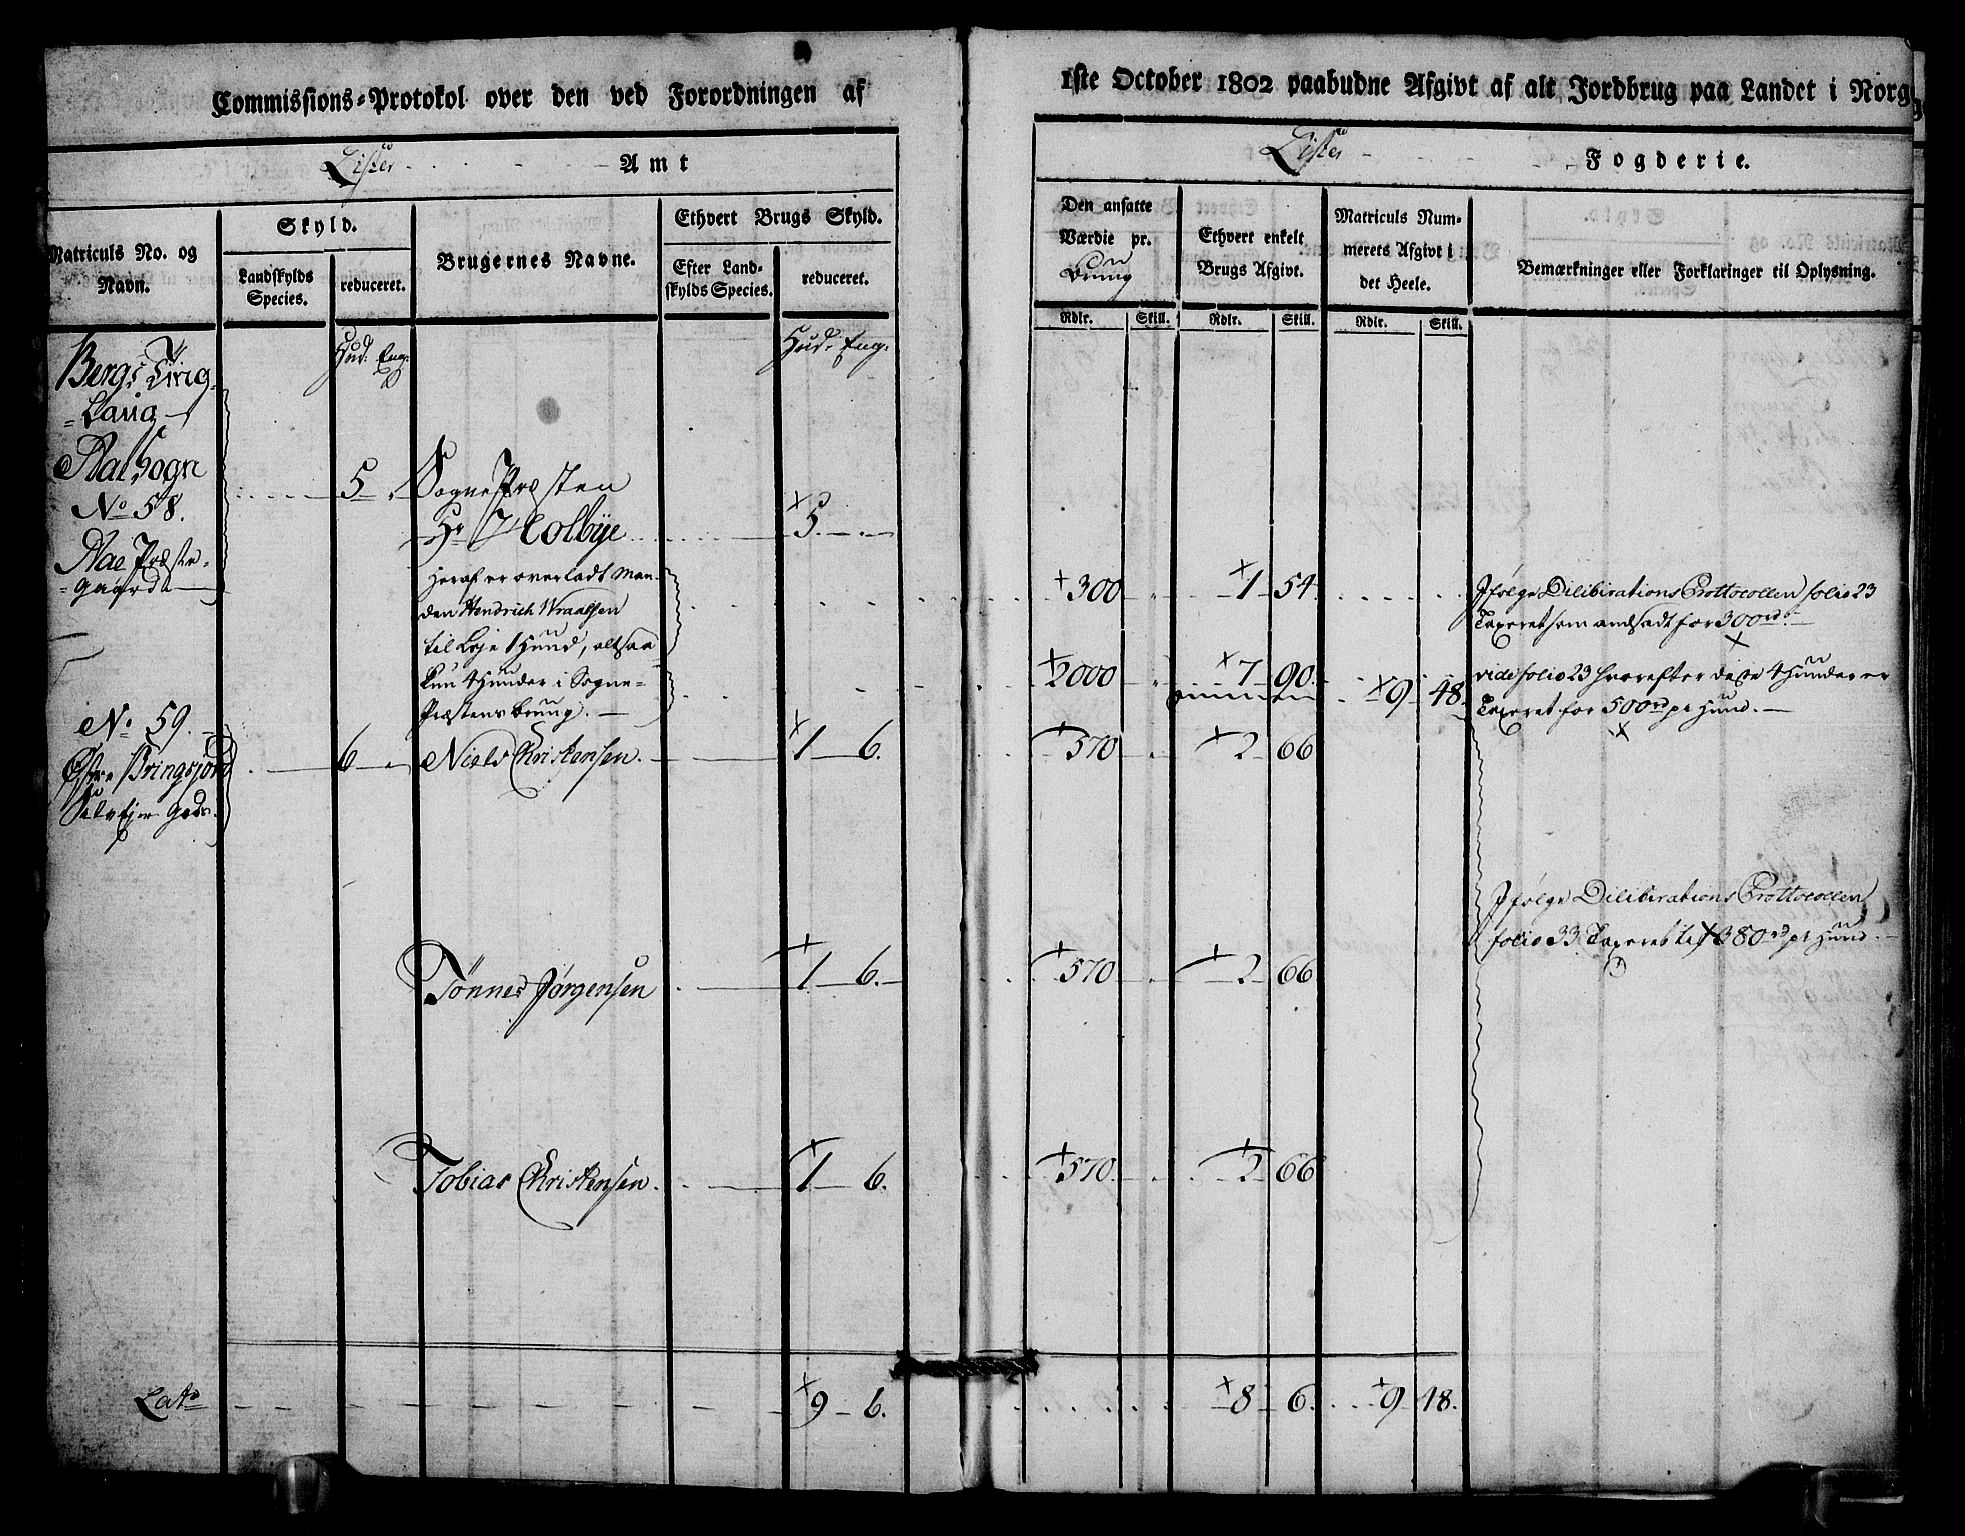 Commissions-Protokol over den ved Forordningen af
1ste October 1802 paabudne Afgivt af alt Jordbrug paa Landet i Norg
Lister Amt
Lister Fogderie.
Matriculs No. og Navn.
Skyld.
Landskylds Species.
reduceret.
Brugernes Navne.
Ethvert Brugs Skyld.
Efter Landskylds Species.
reduceret.
Den ansatte Værdie pr. Brug
Ethvert enkelt Brugs Afgivt.
Matriculs Nummerets Afgivt i det Heele.
Bemærkninger eller Forklaringer til Oplysning.
Rdlr. Skill. Rdlr. Skill. Rdlr. Skill.
Hud: Eng:
Hud: Eng:
Bergs Ting-
=Laug
Aae Sogn
No 58.
Aae Præste-
=Gaard
5
Sogne Præsten
Hr Holbye
5
Heraf er overladt Man-
den Hendrich Wraalsen
til Leje 1 Hund, altsaa
kun 4 Hunder i Sogne-
Præstens Brug.
300 1 54
Ifølge Dilibirations Prottocollen folio 23
Taxeret som andsadt for 300 rd
2000 7 90 9 48
vide folio 23 hvorefter disse 4 Hunder er
Taxeret for 500 rd pr Hund.
No 59.
Østre Bringsjord
Selvejer Gods.
6
Niels Christensen
1 6.
570 2 66
Ifølge Dilibirations Prottocollen
folio 33 Taxeret til 380 rd pr Hund
Tønnes Jørgensen
1 6.
570 2 66
Tobias Christensen
1 6.
570 2 66
Lats
9 6.
8 6 9 48.